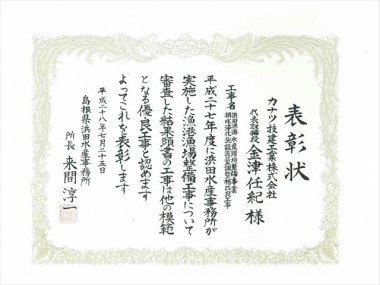 表彰状
カナツ技建工業株式会社
代表取締役 金津任紀様
工事名
平成二十七年度に浜田水産事務所が
実施した漁港漁場整備工事について
審査した結果頭書の工事は他の模範
となる優良工事と認めます
よってこれを表彰します
平成二十八年七月二十五日
島根県浜田水産事務所
所長 来間淳一